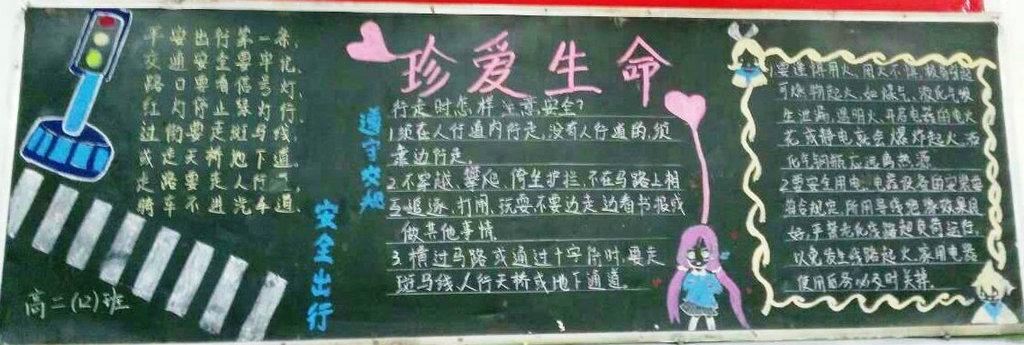 珍爱生命
平安出行第一条,
交通安全要牢记,
路口要看信号灯,
红灯停止绿灯行,
过街要走斑马线,
或走天桥地下道,
走路要走人行道,
骑车不进汽车道
高二(12)班
安全出行
遵守交规
行走时怎样注意安全?
1.须在人行道内行走,没有人行道的,须
靠边行走。
2.不穿越、攀爬、倚坐护拦,不在马路上相
互追逐、打闹、玩耍,不要边走边看书报或
做其他事情
3.横过马路或通过十字路时,要走
斑马线、人行天桥或地下通道。
用火,用火不慎,
可燃物起火,如煤气、液化气发
生泄漏,遇明火、开启电器的电火
花或静电就会爆炸起火,液
化气钢瓶应远离热源
2.要安全用电,电器设备的安装要
符合规定,所用导线绝缘效果良
好,严禁超负荷运行,
以免发生线路起火,家用电器
使用后务必及时关掉。